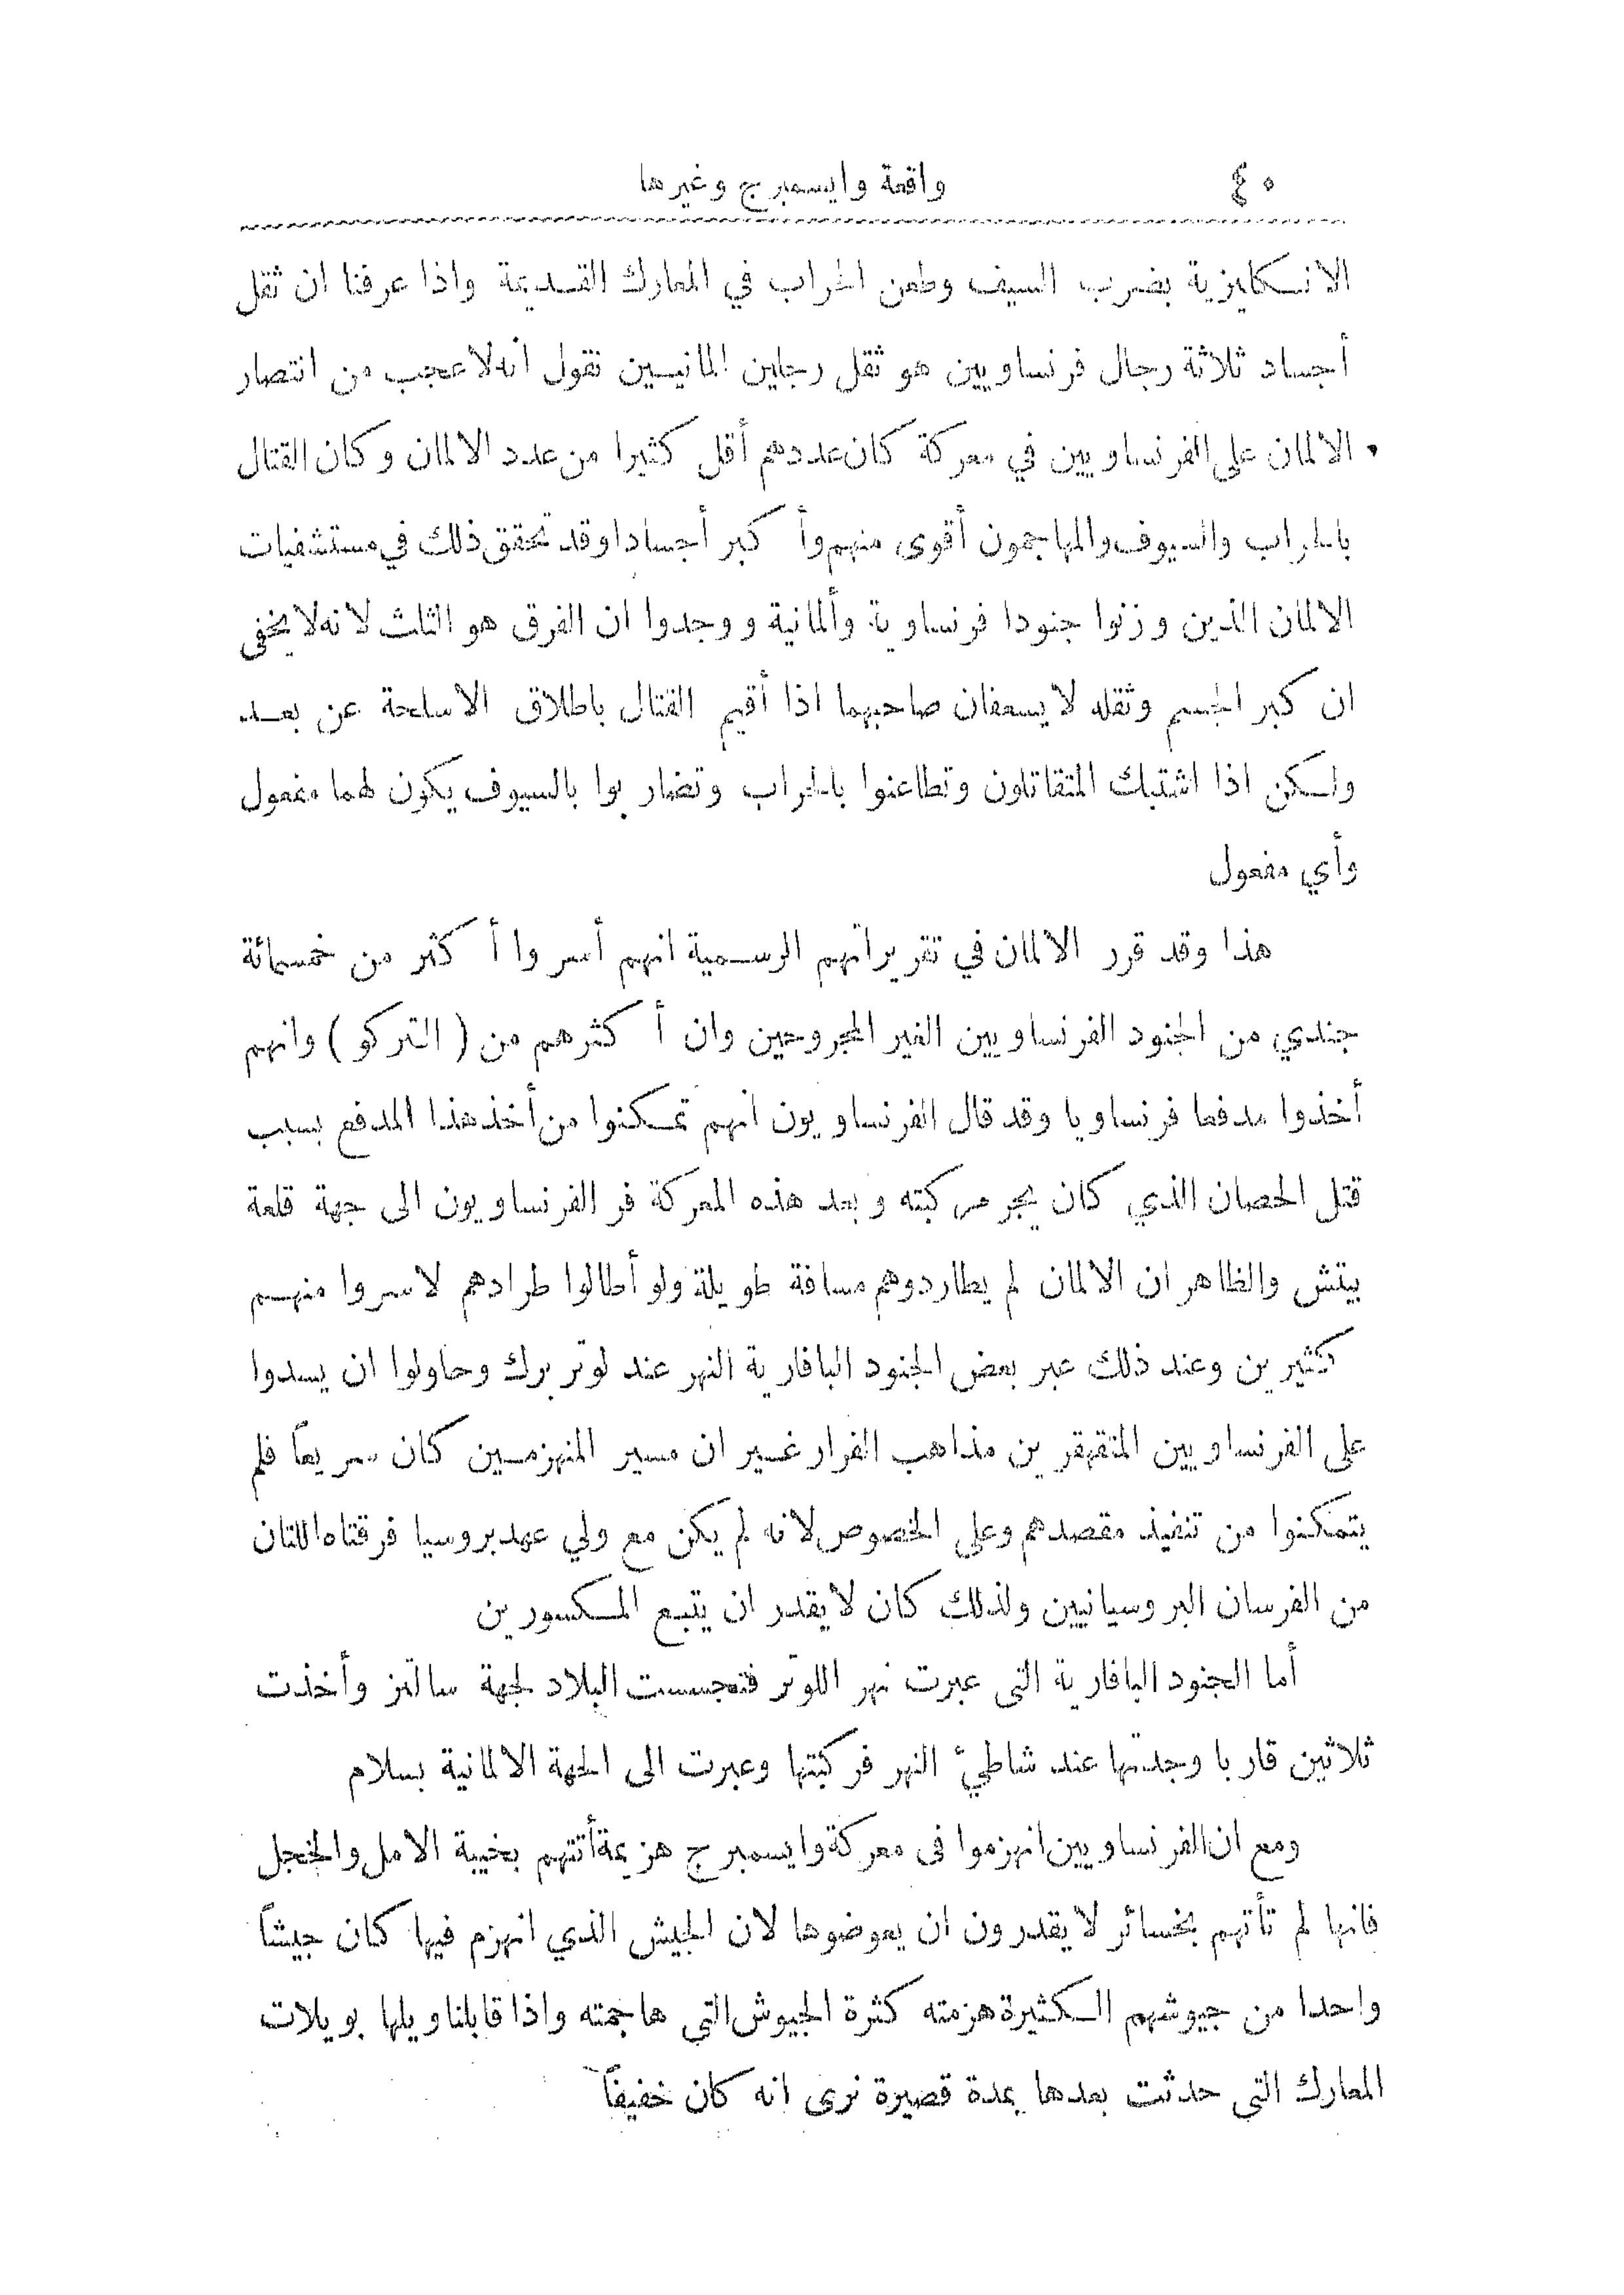 ٤٠
واقعة وايسمبرج وغيرها
الانكليزية بضرب السيف وطعن الحراب في المعارك القديمة واذا عرفنا ان ثقل
أجساد ثلاثة رجال فرنساويين هو ثقل رجلين المانيين نقول انه لا عجب من انتصار
الالمان على الفرنساويين في معركة كان عددهم أقل كثيرا من عدد الالمان وكان القتال
بالحراب والسيوف والمهاجمون أقوى منهم وأكبر أجسادا وقد تحقق ذلك في مستشفيات
الالمان الذين وزنوا جنودا فرنساوية وألمانية ووجدوا ان الفرق هو الثلث لانه لا يخفى
ان كبر الجسم وثقله لا يسعفان صاحبهما اذا أقيم القتال باطلاق الاسلحة عن بعد
ولكن اذا اشتبك المتقاتلون وتطاعنوا بالحراب وتضاربوا بالسيوف يكون لهما مفعول
وأي مفعول
هذا وقد قرر الالمان في تقريراتهم الرسمية انهم أسروا أكثر من خمسمائة
جندي من الجنود الفرنساويين الغير المجروحين وان أكثرهم من (التركو) وانهم
أخذوا مدفعا فرنساويا وقد قال الفرنساويون انهم تمكنوا من أخذ هذا المدفع بسبب
قتل الحصان الذي كان يجر مركبته وبعد هذه المعركة فر الفرنساويون الى جهة قلعة
بيتش والظاهر ان الالمان لم يطاردوهم مسافة طويلة ولو أطالوا طرادهم لاسروا منهم
كثيرين وعند ذلك عبر بعض الجنود البافارية النهر عند لوتربرك وحاولوا ان يسدوا
على الفرنساويين المتقهقرين مذاهب الفرار غير ان مسير المنهزمين كان سريعاً فلم
يتمكنوا من تنفيذ مقصدهم وعلى الخصوص لانه لم يكن مع ولي عهد بروسيا فرقتاه اللتان
من الفرسان البروسيانيين ولذلك كان لا يقدر ان يتبع المكسورين
أما الجنود البافارية التى عبرت نهر اللوتر فتجسست البلاد لجهة سالتز وأخذت
ثلاثين قاربا وجدتها عند شاطئ النهر فركبتها وعبرت الى الجهة الالمانية بسلام
ومع ان الفرنساويين انهزموا فى معركة وايسمبرج هزيمة أتتهم بخيبة الامل والخجل
فانها لم تأتهم بخسائر لا يقدرون ان يعوضوها لان الجيش الذي انهزم فيها كان جيشاً
واحدا من جيوشهم الكثيرة هزمته كثرة الجيوش التي هاجمته واذا قابلنا ويلها بويلات
المعارك التي حدثت بعدها بمدة قصيرة نرى انه كان خفيفاً